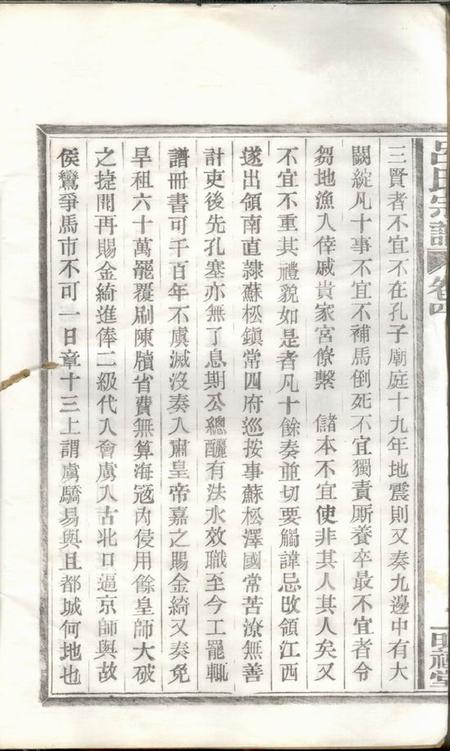 呂氏宗譜
卷四
三賢者不宜不在孔子廟庭十九年地震則又奏九邊中有大
闕綻凡十事不宜不補馬倒死不宜獨責厮養卒最不宜者令
芻地漁人倖戚貴家宮僚繫　儲本不宜使非其人其人矣又
不宜不重其禮貌如是者凡十餘奏並切要觸諱忌改領江西
遂出領南直隷蘇松鎮常四府巡按事蘇松澤國常苦潦無善
計吏後先孔塞亦無了息期公總釃有法水效職至今工罷輒
譜冊書可千百年不虞滅沒奏入肅皇帝嘉之賜金綺又奏免
旱租六十萬罷覆刷陳牘省費無算海冦內侵用餘皇師大破
之捷聞再賜金綺進俸二級代入會虜入古北口逼京師與故
侯鸞爭馬市不可一日章十三上謂虜驕易與且都城何地也
明禋堂